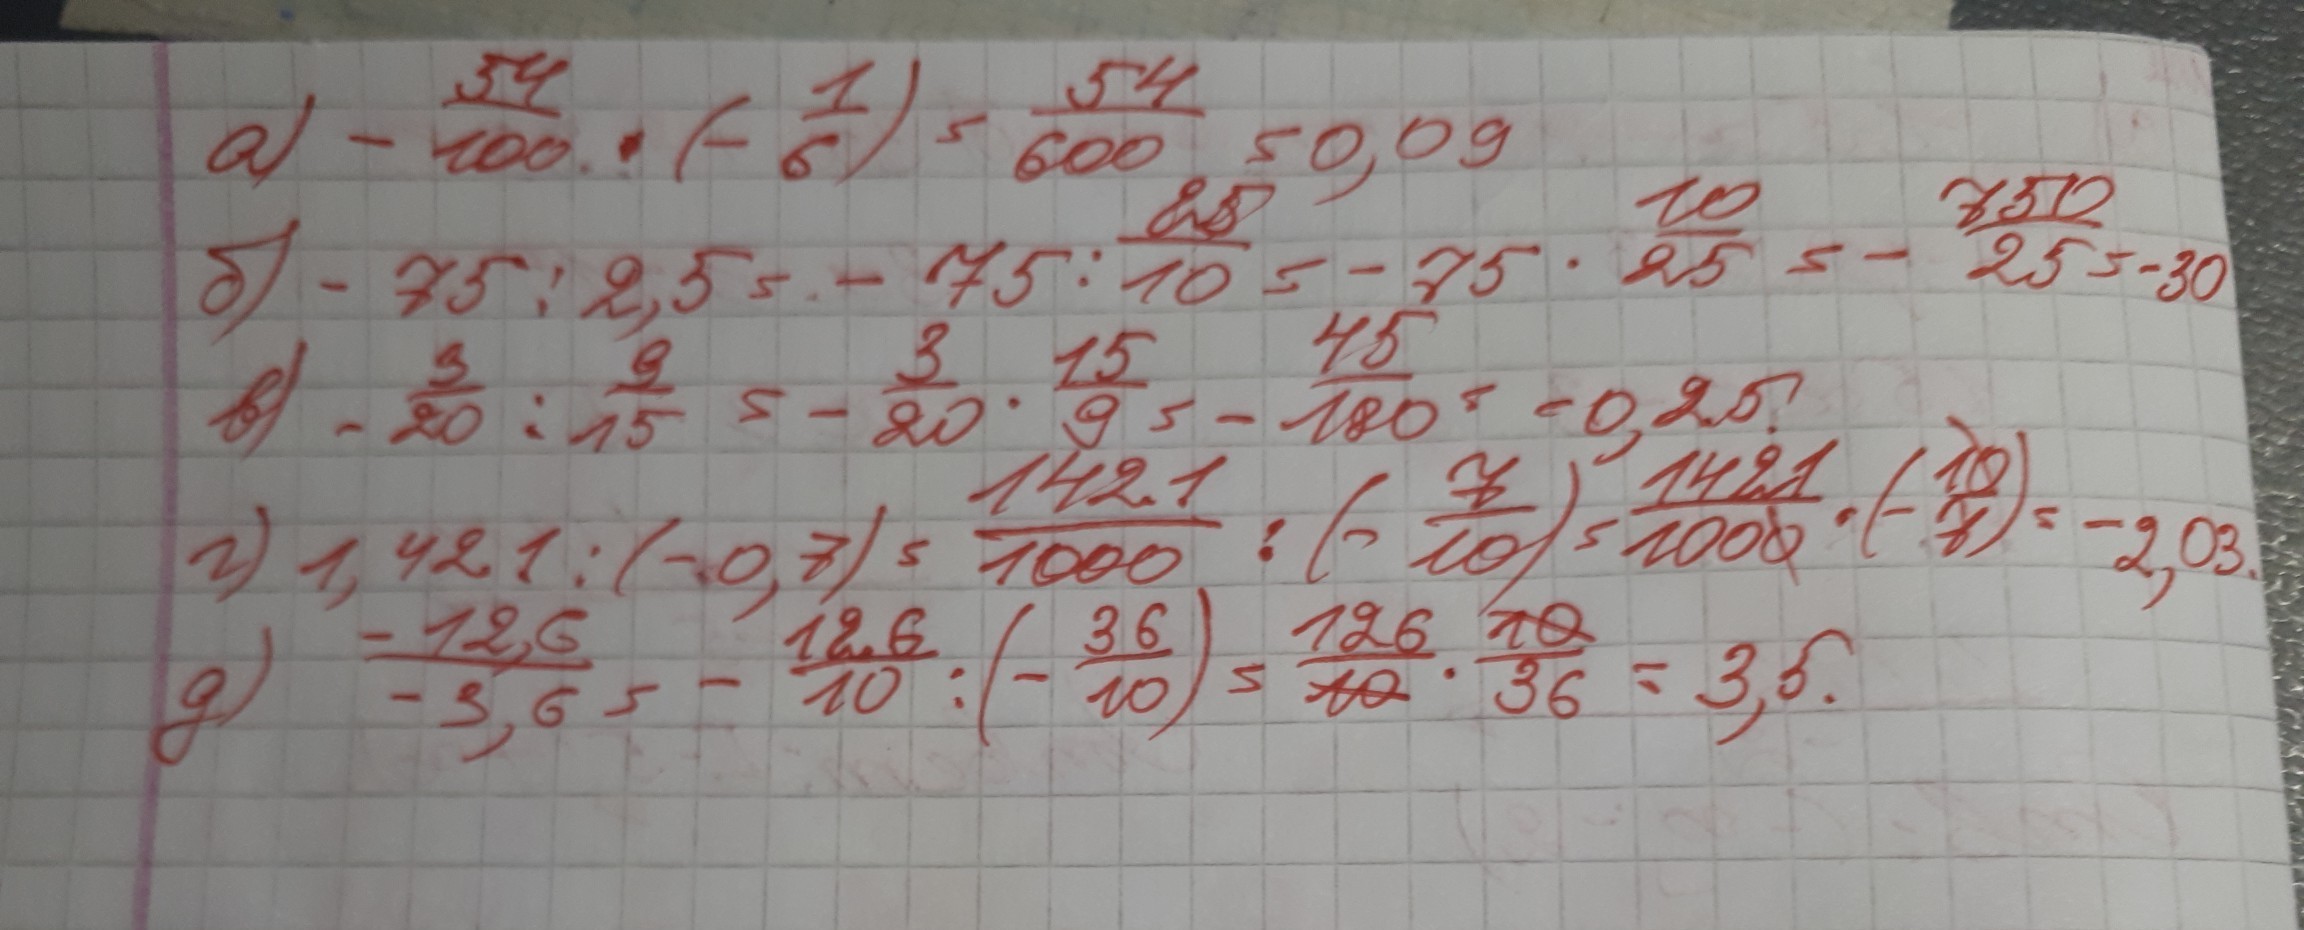 а) - 54/100 · (- 1/6) = 54/600 = 0,09
б) - 75 : 2,5 = - 75 : 25/10 = - 75 · 10/25 = - 750/25 = -30
в) - 3/20 : 9/15 = - 3/20 · 15/9 = - 45/180 = -0,25.
г) 1,421 : (-0,7) = 1421/1000 : (- 7/10) = 1421/1000 · (- 10/7) = -2,03.
д) -12,6/-3,6 = - 126/10 : (- 36/10) = 126/10 · 10/36 = 3,5.